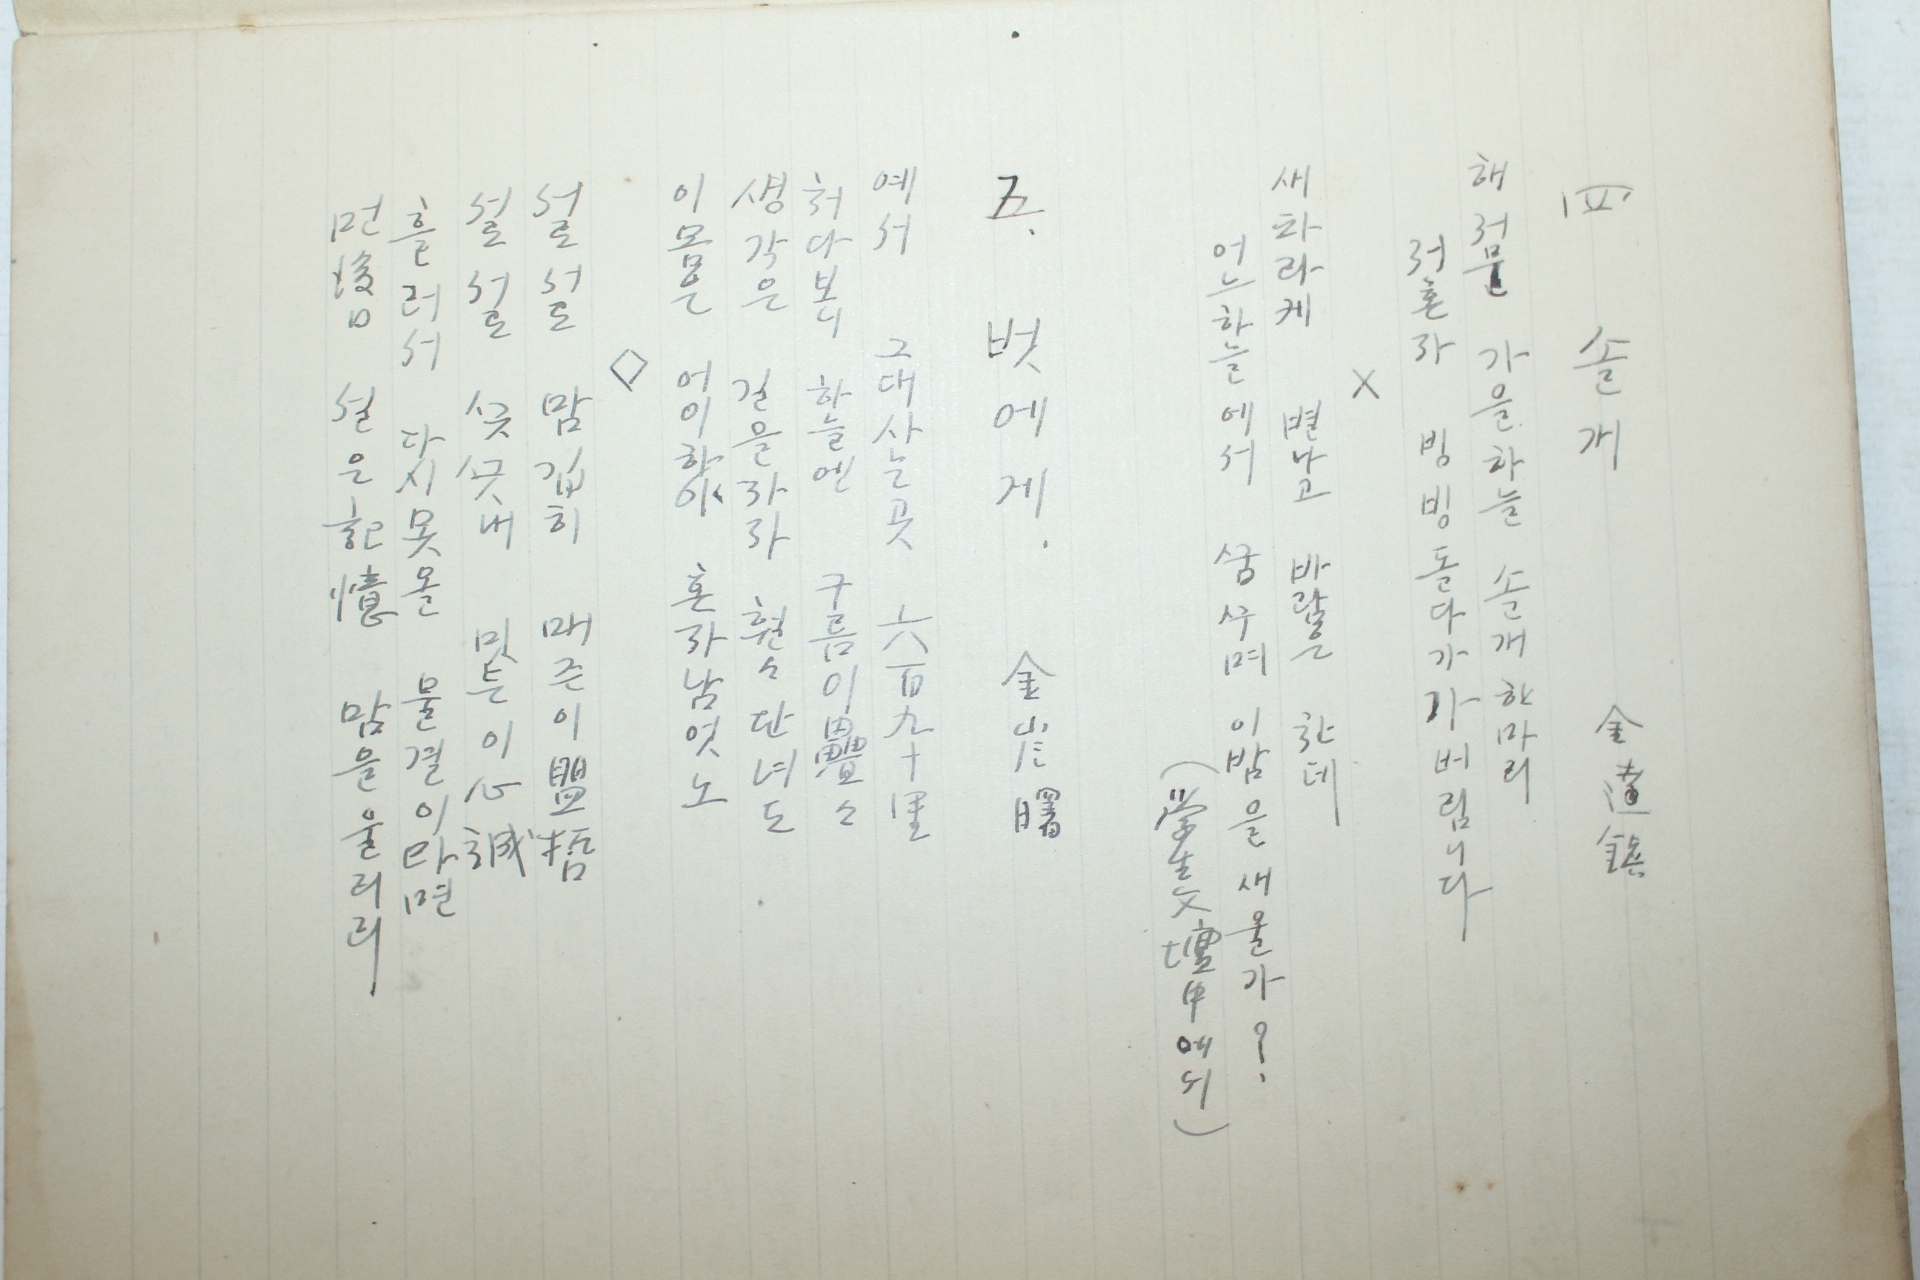 四 솔개 金道鎭
해 저문 가을하늘 솔개 한마리
저혼자 빙빙돌다가 가버립니다
×
새파라케 별나고 바람은 찬데
어느하늘에서 ᄭᅮᆷᄭᅮ며 이밤을 새울가?
(学生文壇中에서)
五. 벗에게. 金岸曙
예서 그대사는곳 六百九十里
처다보니 하늘엔 구름이疊々
생각은 길을ᄯᅡ라 훤々단녀도
이몸은 어이하야 혼자남엇노
◇
설설 맘깁히 매즌이盟誓
설설 ᄭᅳᆺᄭᅳᆺ내 밋든이心誠
흘러서 다시못올 물결이라면
먼後日 설은記憶 맘을울리리